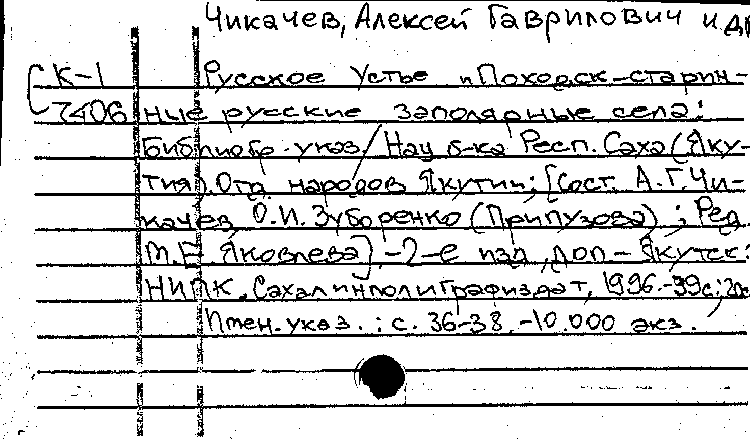 Чикачев, Алексей Гаврилович и др
К-1 Русское Устье и Походск-старин-
7406 ные русские заполярные села:
Библиогр. указ./Нац б-ка Респ. Саха (Яку-
тия). Отд народов Якутии; [Сост. А.Г.Чи-
качев, О.И. Зуборенко (Припузова); Ред.
М.Е. Яковлева].-2-е изд, доп-Якутск:
НИПК. Сахаполиграфиздат, 1996.-39с;
Имен.указ.: с. 36-38.-10.000 экз.